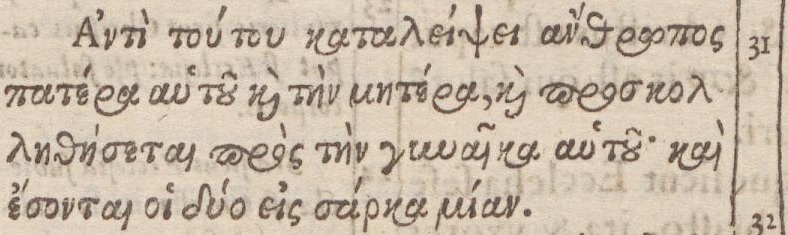 Ἀντὶ τούτου καταλείψει ἄνθρωπος 31
πατέρα αὑτοῦ καὶ τὴν μητέρα, καὶ προσκολ
ληθήσεται πρὸς τὴν γυναῖκα αὑτοῦ· καὶ
ἔσονται οἱ δύο εἰς σάρκα μίαν. 32